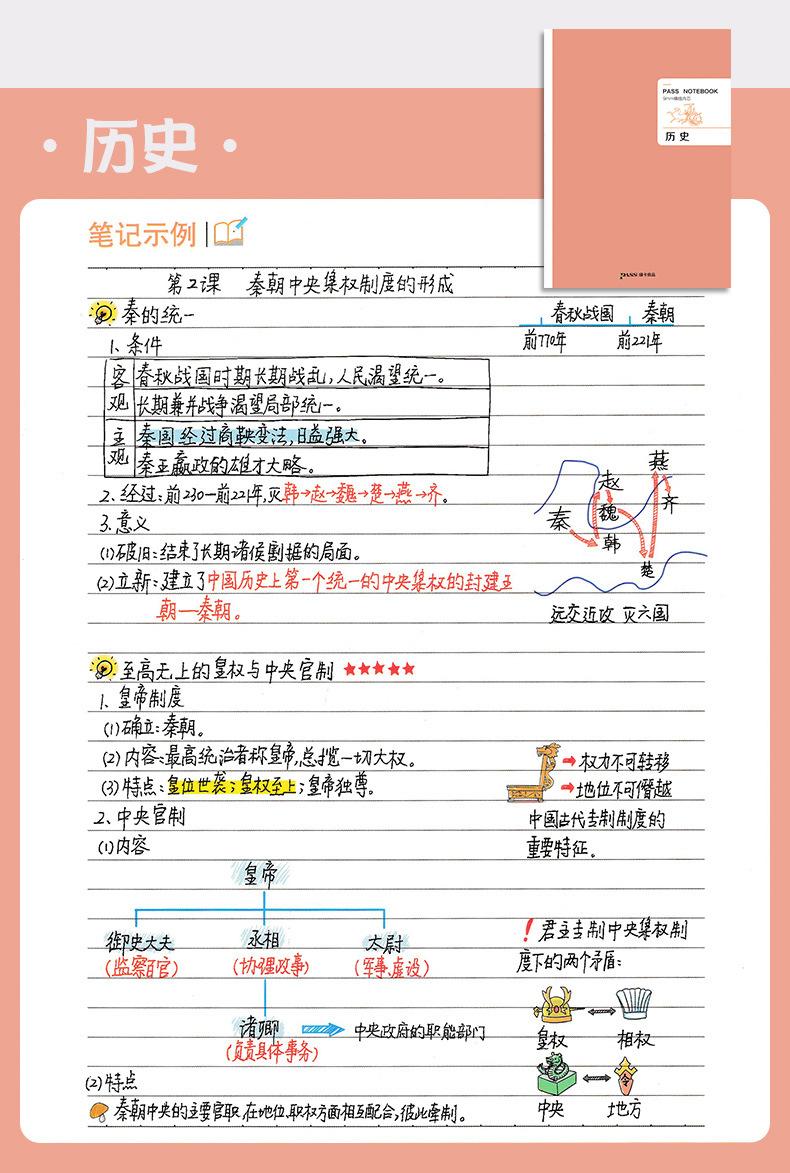 PASS NOTEBOOK
9mm横线内芯
历史
PASS 绿卡图书
·历史·
笔记示例
第2课 秦朝中央集权制度的形成
秦的统一
春秋战国 秦朝
前770年 前221年
1、条件
客观
春秋战国时期长期战乱,人民渴望统一。
长期兼并战争渴望局部统一。
主观
秦国经过商鞅变法,日益强大。
秦王嬴政的雄才大略。
2、经过:前230—前221年,灭韩→赵→魏→楚→燕→齐。
3、意义
(1)破旧:结束了长期诸侯割据的局面。
(2)立新:建立了中国历史上第一个统一的中央集权的封建王
朝—秦朝。
燕
赵
齐
秦
魏
韩
楚
远交近攻 灭六国
至高无上的皇权与中央官制 ★★★★★
1、皇帝制度
(1)确立:秦朝。
(2)内容:最高统治者称皇帝,总揽一切大权。
(3)特点:皇位世袭;皇权至上;皇帝独尊。
→权力不可转移
→地位不可僭越
中国古代专制制度的
重要特征。
2、中央官制
(1)内容
皇帝
御史大夫 丞相 太尉
(监察百官) (协理政事) (军事、虚设)
诸卿 中央政府的职能部门
(负责具体事务)
(2)特点
秦朝中央的主要官职,在地位、职权方面相互配合,彼此牵制。
!君主专制中央集权制
度下的两个矛盾:
皇权 相权
令
中央 地方